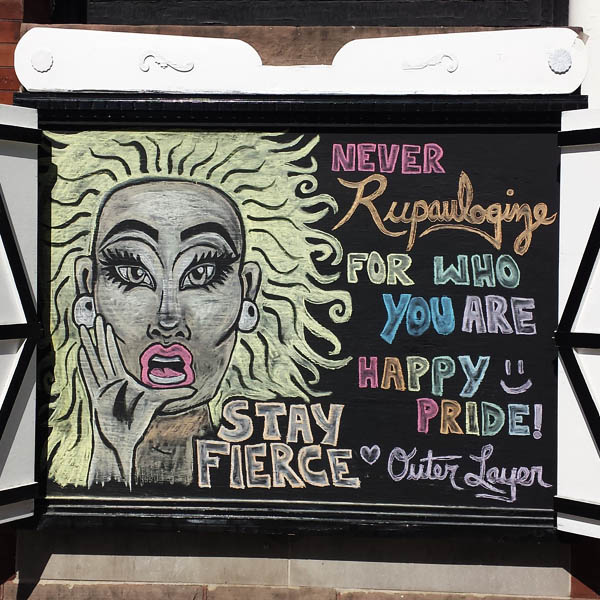 NEVER
Rupaulogize
FOR WHO
YOU ARE
HAPPY
PRIDE!
STAY
FIERCE
Outer Layer